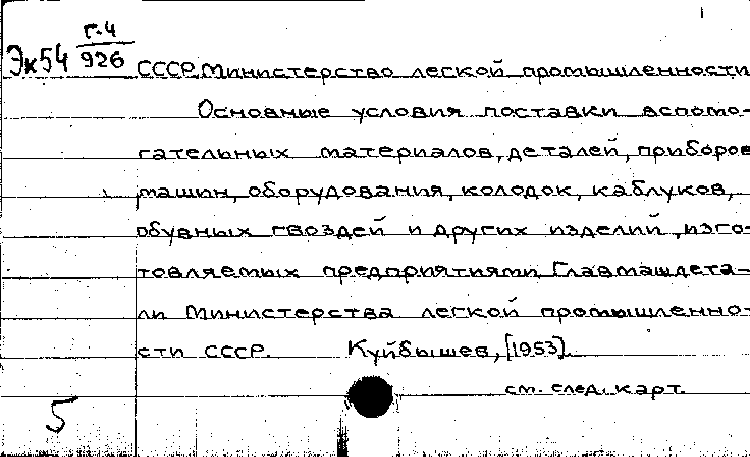 Г-4
Эк54 926
СССР. Министерство легкой промышленности
Основные условия поставки вспомо-
гательных материалов, деталей, приборов
машин, оборудования, колодок, каблуков,
обувных гвоздей и других изделий, изго-
товляемых предприятиями Главмашдета-
ли Министерства легкой промышленно-
сти СССР. Куйбышев, [1953].
см. след. карт.
5